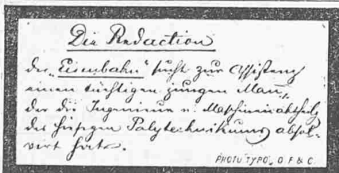 Die Redaction
der „Eisenbahn“ sucht zur Assistenz
einen tüchtigen jungen Mann,
der die Ingenieur- u. Maschinenabtheilg
des hiesigen Polytechnikums absol-
virt hat.
PHOTOTYPO, O F & C.